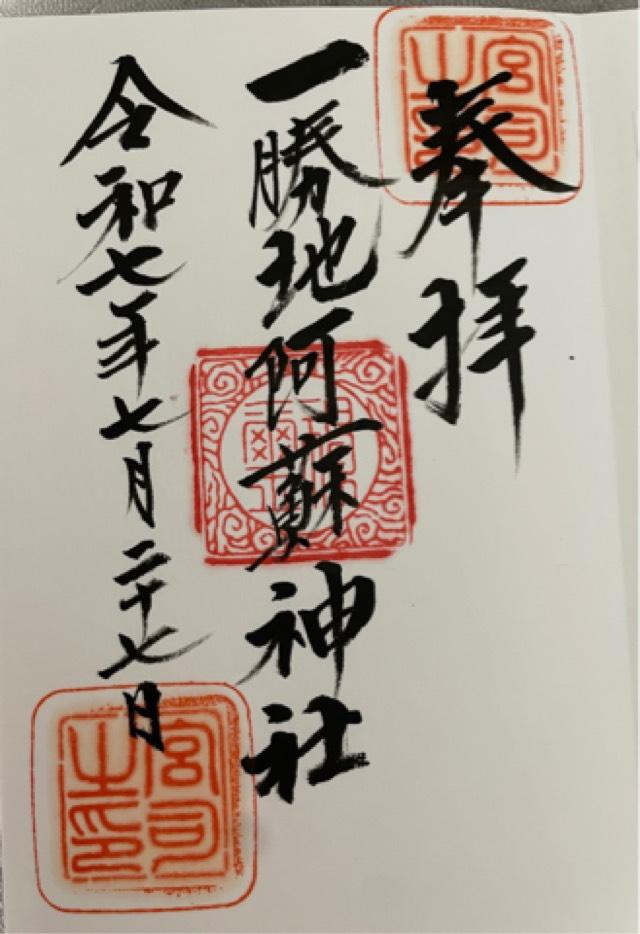 奉拝
一勝地阿蘇神社
令和七年七月二十七日
宮司之印
宮司之印